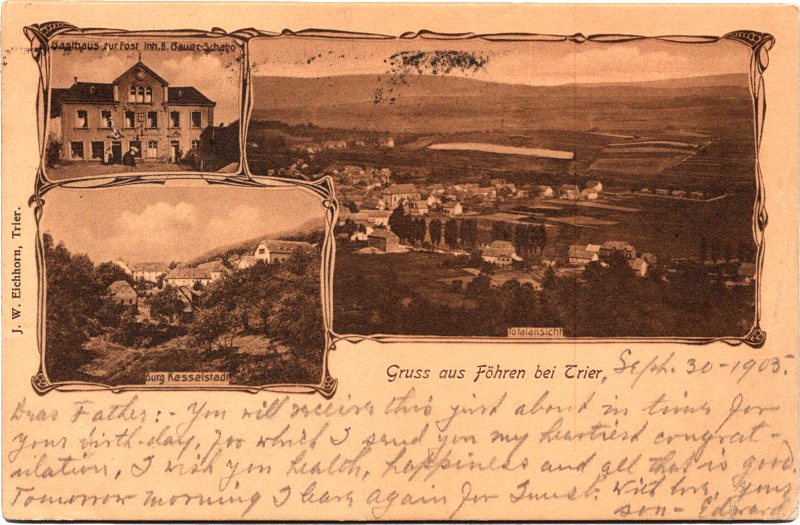 Gasthaus zur Post Inh. B. Gauer-Schabo
Totalansicht
Burg Kesselstadt
J. W. Eichhorn, Trier.
Gruss aus Föhren bei Trier,
Sept. 30-1905.
Dear Father:- You will receive this just about in time for
your birth-day, for which I send you my heartiest congrat-
ulation, I wish you health, happiness and all that is good.
Tomorrow morning I leave again for With love, Your
son- Edward